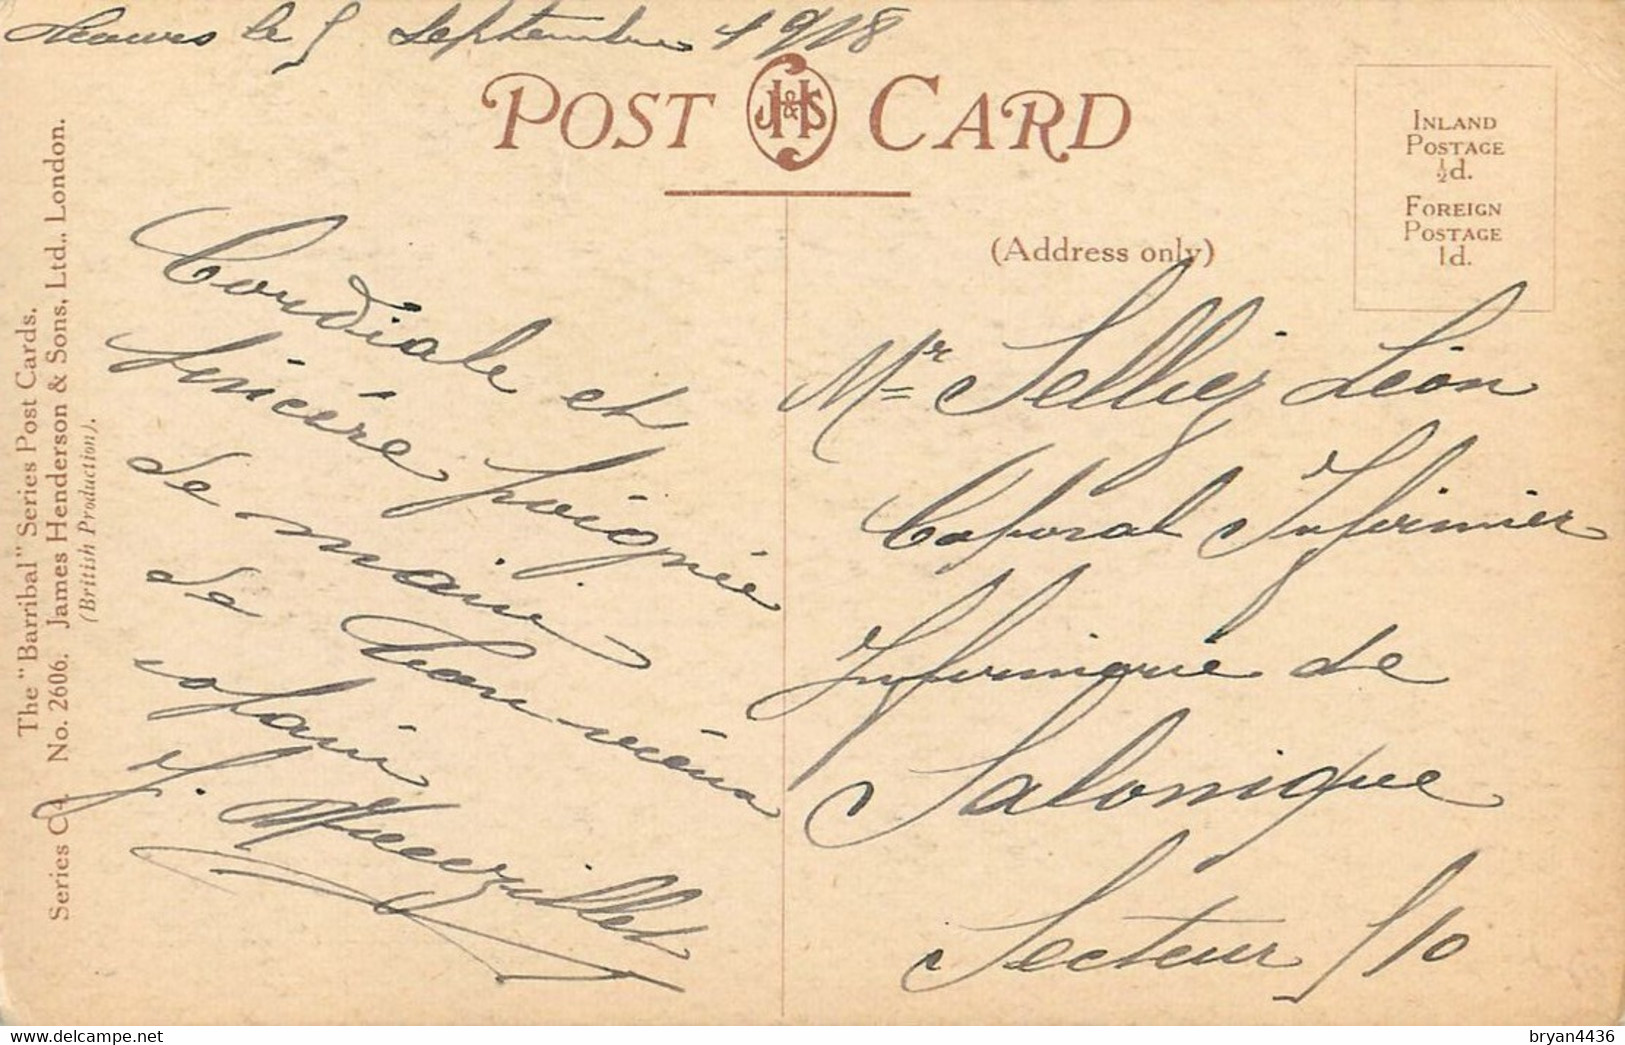 le 5 Septembre 1918
POST J&HS CARD
INLAND
POSTAGE
½d.
FOREIGN
POSTAGE
1d.
(Address only)
Cordiale et
sincére poignée
de main
de
J.
Mr Sellier Léon
Caporal Infirmier
Infirmerie de
Salonique
Secteur 510
The "Barribal" Series Post Cards.
Series C4. No. 2606. James Henderson & Sons, Ltd., London.
(British Production).
https://www.delcampe.net
bryan4436